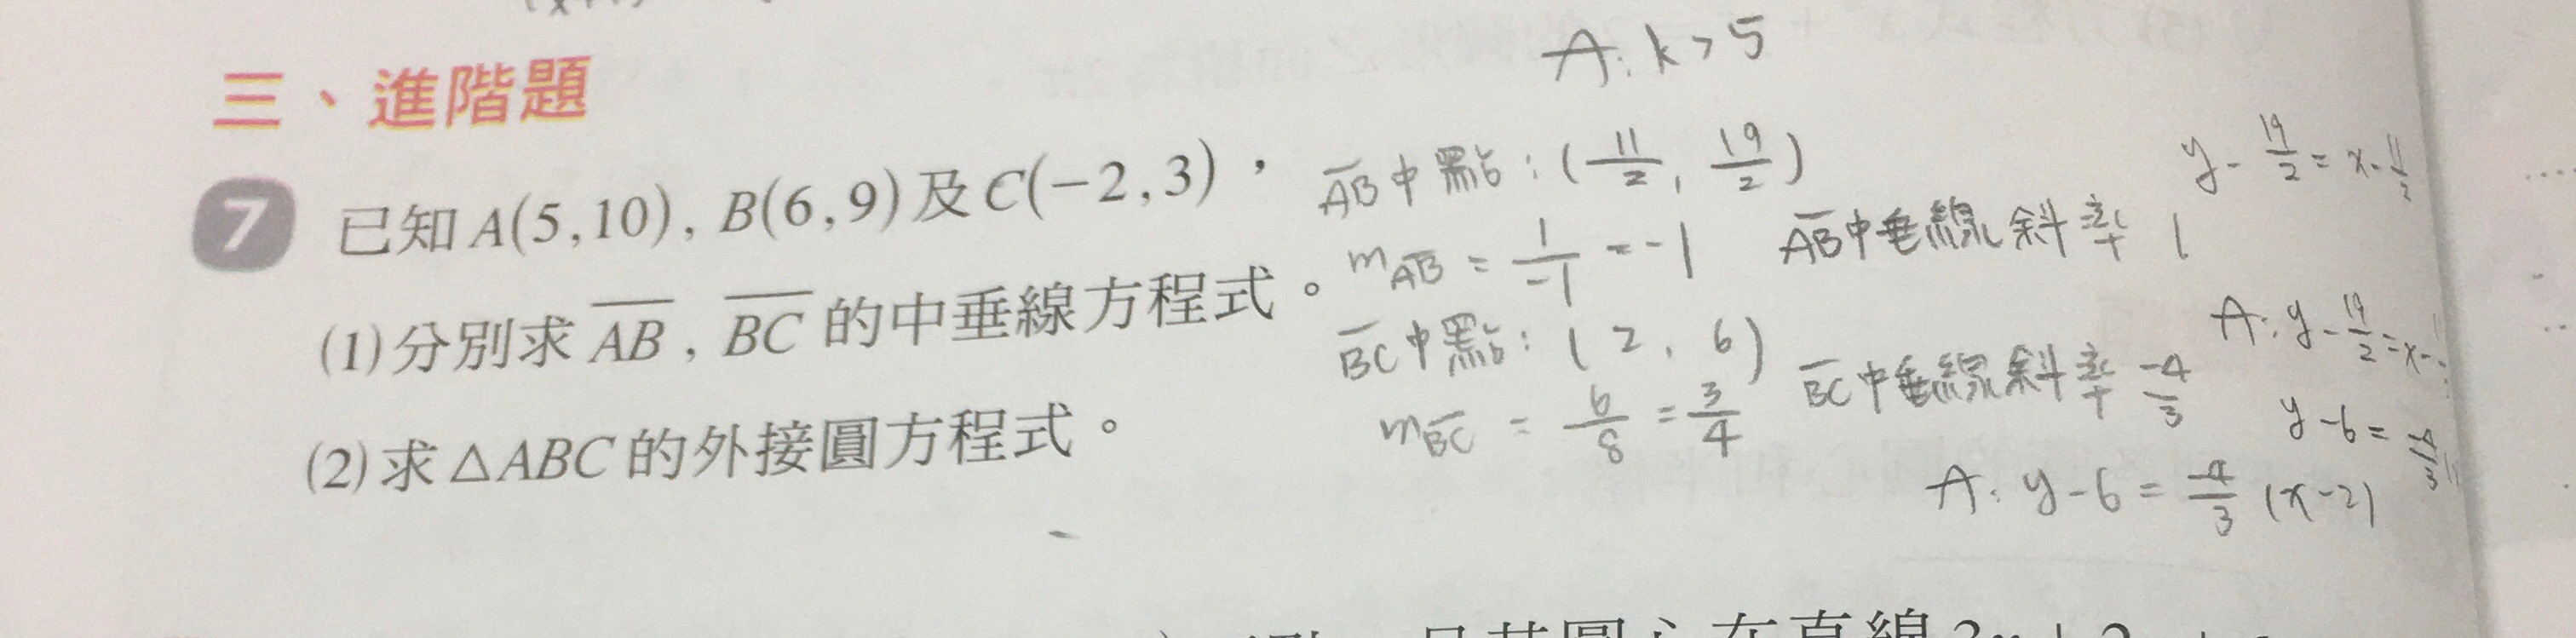 A: k > 5
三、進階題
7 已知 A(5,10), B(6,9) 及 C(−2,3)，
(1)分別求 \overline{AB}, \overline{BC} 的中垂線方程式。
(2)求 △ABC 的外接圓方程式。
\overline{AB}中點：(11/2, 19/2)
m\overline{AB} = 1/-1 = -1
\overline{AB}中垂線斜率 1
y - 19/2 = x - 11/2
A: y - 19/2 = x -
\overline{BC}中點：(2, 6)
m\overline{BC} = 6/8 = 3/4
\overline{BC}中垂線斜率 -4/3
y - 6 =
A: y - 6 = -4/3 (x - 2)